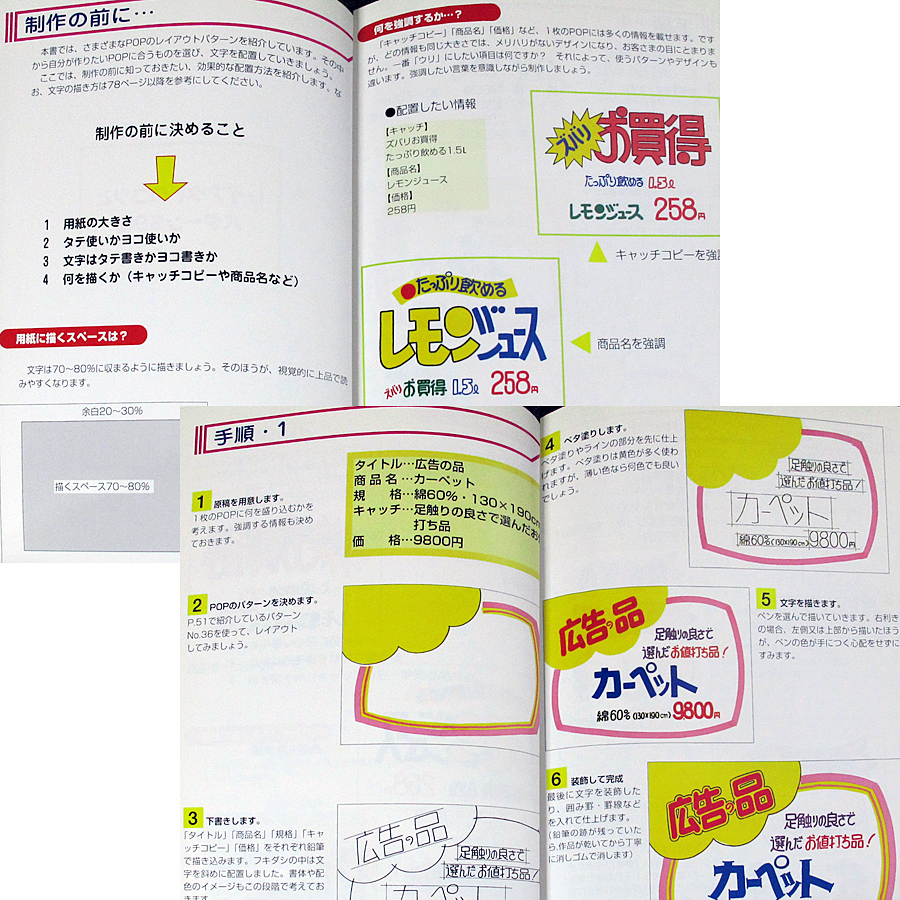 制作の前に…
本書では、さまざまなPOPのレイアウトパターンを紹介しています。その中
から自分が作りたいPOPに合うものを選び、文字を配置していきましょう。
ここでは、制作の前に知っておきたい、効果的な配置方法を紹介します。な
お、文字の描き方は78ページ以降を参考にしてください。
制作の前に決めること
1 用紙の大きさ
2 タテ使いかヨコ使いか
3 文字はタテ書きかヨコ書きか
4 何を描くか（キャッチコピーや商品名など）
用紙に描くスペースは？
文字は70〜80%に収まるように描きましょう。そのほうが、視覚的に上品で読
みやすくなります。
余白20〜30%
描くスペース70〜80%
何を強調するか…？
「キャッチコピー」「商品名」「価格」など、1枚のPOPには多くの情報を載せます。です
が、どの情報も同じ大きさでは、メリハリがないデザインになり、お客さまの目にとまりま
せん。一番「ウリ」にしたい項目は何ですか？ それによって、使うパターンやデザインも
違います。強調したい言葉を意識しながら制作しましょう。
●配置したい情報
【キャッチ】
ズバリお買得
たっぷり飲める1.5L
【商品名】
レモンジュース
【価格】
258円
ズバリ
お買得
たっぷり飲める 1.5ℓ
レモンジュース 258円
キャッチコピーを強調
たっぷり飲める
レモンジュース
ズバリ お買得 1.5ℓ 258円
商品名を強調
手順・1
1 原稿を用意します。
1枚のPOPに何を盛り込むかを
考えます。強調する情報も決め
ておきます。
タイトル…広告の品
商品名…カーペット
規 格…綿60%・130×190cm
キャッチ…足触りの良さで選んだお
打ち品
価 格…9800円
2 POPのパターンを決めます。
P.51で紹介しているパターン
No.36を使って、レイアウト
してみましょう。
3 下書きします。
「タイトル」「商品名」「規格」「キャ
ッチコピー」「価格」をそれぞれ鉛筆
で描き込みます。フキダシの中は文
字を斜めに配置しました。書体や配
色のイメージもこの段階で考えてお
きます。
広告の品
足触りの良さで
選んだお値打ち品！
カーペット
4 ベタ塗りします。
ベタ塗りやラインの部分を先に仕上
げます。ベタ塗りは黄色が多く使わ
れますが、薄い色なら何色でも良い
でしょう。
足触りの良さで
選んだお値打ち品！
カーペット
綿60%(130×190cm) 9800円
5 文字を描きます。
ペンを選んで描いていきます。右利き
の場合、左側又は上部から描いたほう
が、ペンの色が手につく心配をせずに
すみます。
広告の品
足触りの良さで
選んだお値打ち品！
カーペット
綿60%(130×190cm) 9800円
6 装飾して完成
最後に文字を装飾した
り、囲み罫・罫線など
を入れて仕上げます。
（鉛筆の跡が残っていた
ら、作品が乾いてから丁寧
に消しゴムで消します）
広告の品
足触りの良さで
選んだお値打ち品！
カーペット